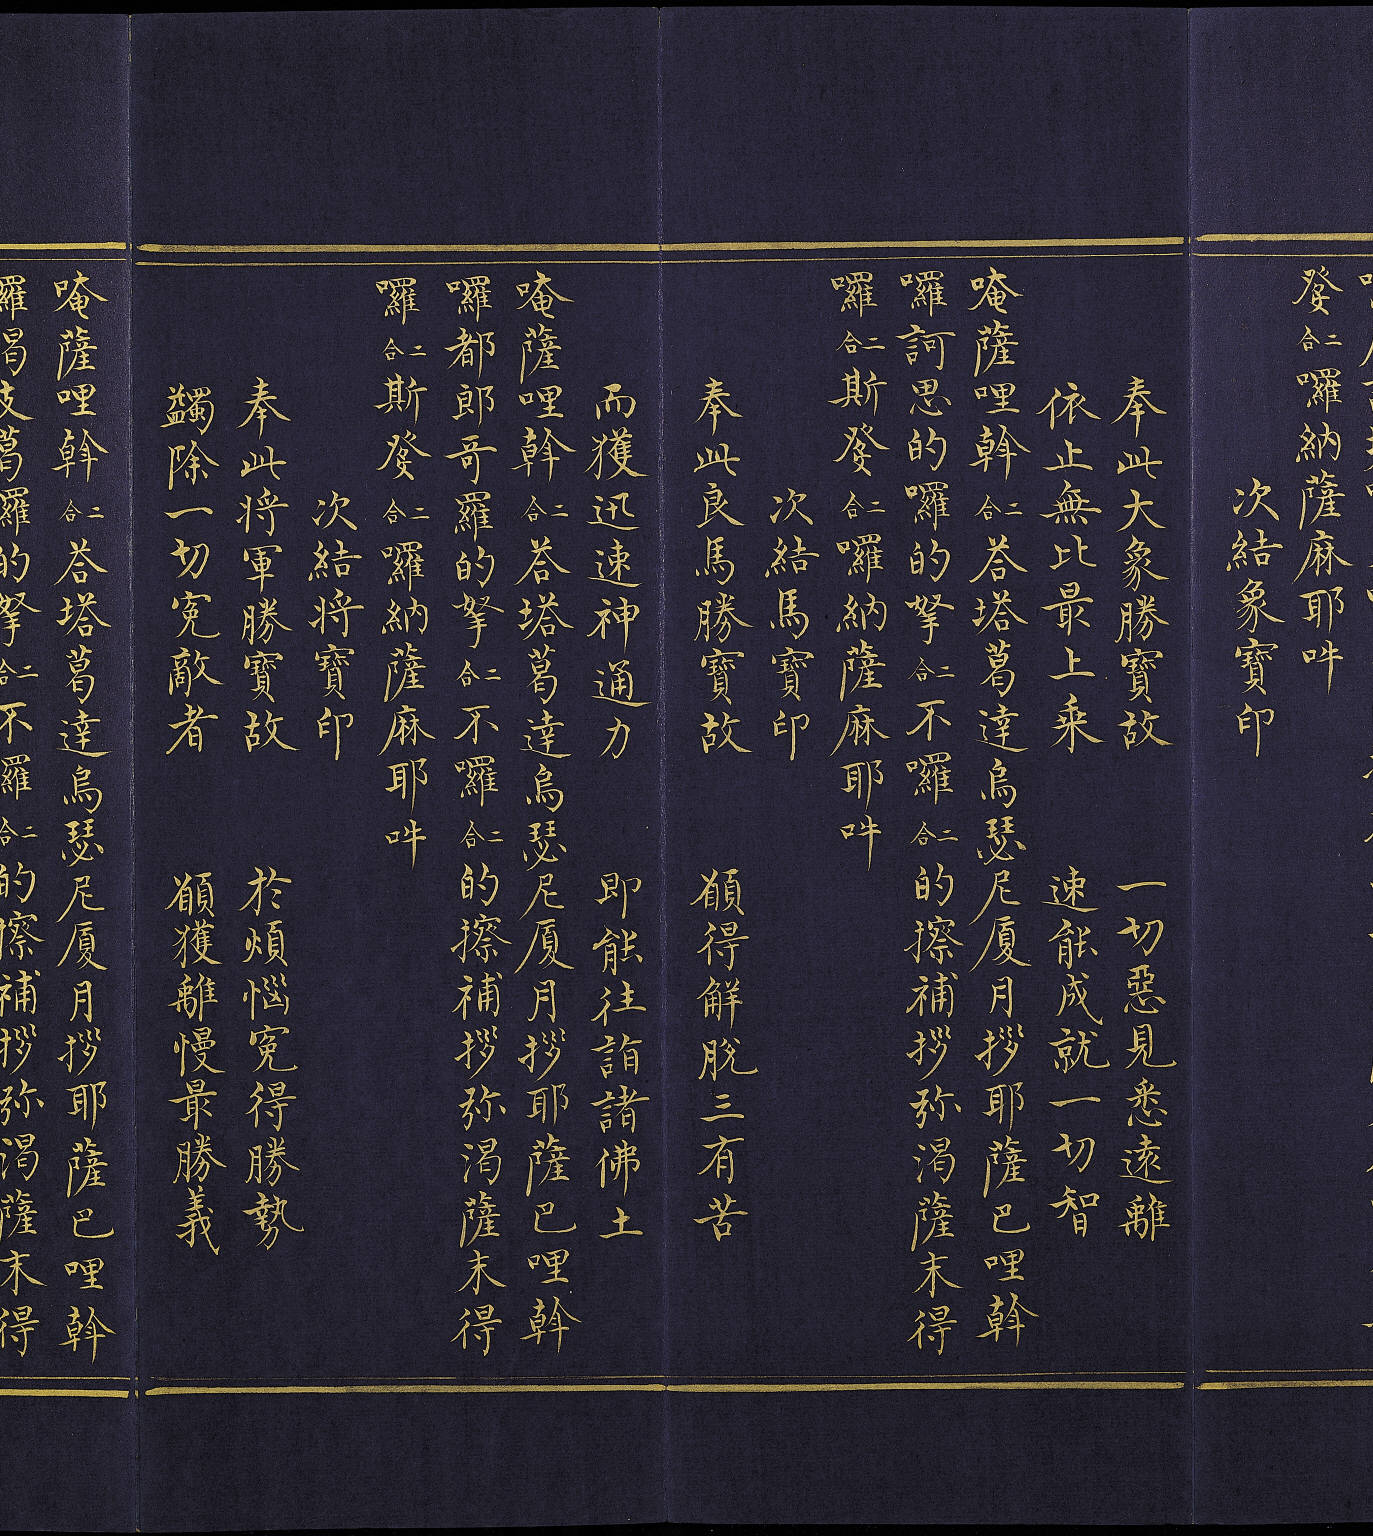 癹二合囉納薩麻耶吽
次結象寶印
奉此大象勝寶故 一切惡見悉遠離
依止無比最上乘 速能成就一切智
唵薩哩斡二合荅塔葛達烏瑟尼厦月拶耶薩巴哩斡
囉訶思的囉的拏二合不囉二合的擦補拶弥渴薩末得
囉二合斯癹二合囉納薩麻耶吽
次結馬寶印
奉此良馬勝寶故 願得解脫三有苦
而獲迅速神通力 即能往詣諸佛土
唵薩哩斡二合荅塔葛達烏瑟尼厦月拶耶薩巴哩斡
囉都郎哥羅的拏二合不囉二合的擦補拶弥渴薩末得
囉二合斯癹二合囉納薩麻耶吽
次結将寶印
奉此将軍勝寶故 於煩惱寃得勝勢
蠲除一切寃敵者 願獲離慢最勝義
唵薩哩斡二合荅塔葛達烏瑟尼厦月拶耶薩巴哩斡
羅渴支葛羅的拏二合不羅二合的擦補拶弥渴薩末得